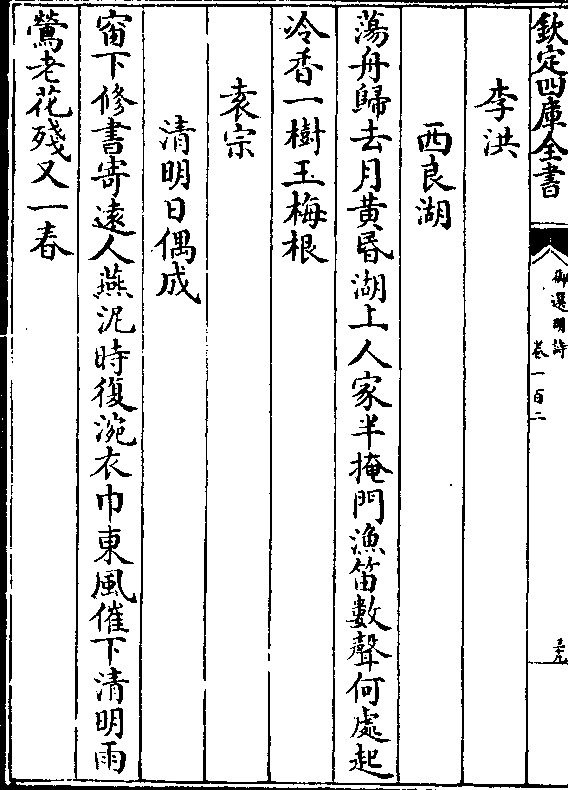 欽定四庫全書
御選明詩
卷一百二
李洪
西良湖
蕩舟歸去月黃昏湖上人家半掩門漁笛數聲何處起
冷香一樹玉梅根
袁宗
清明日偶成
窗下修書寄遠人燕泥時復涴衣巾東風催下清明雨
鶯老花殘又一春